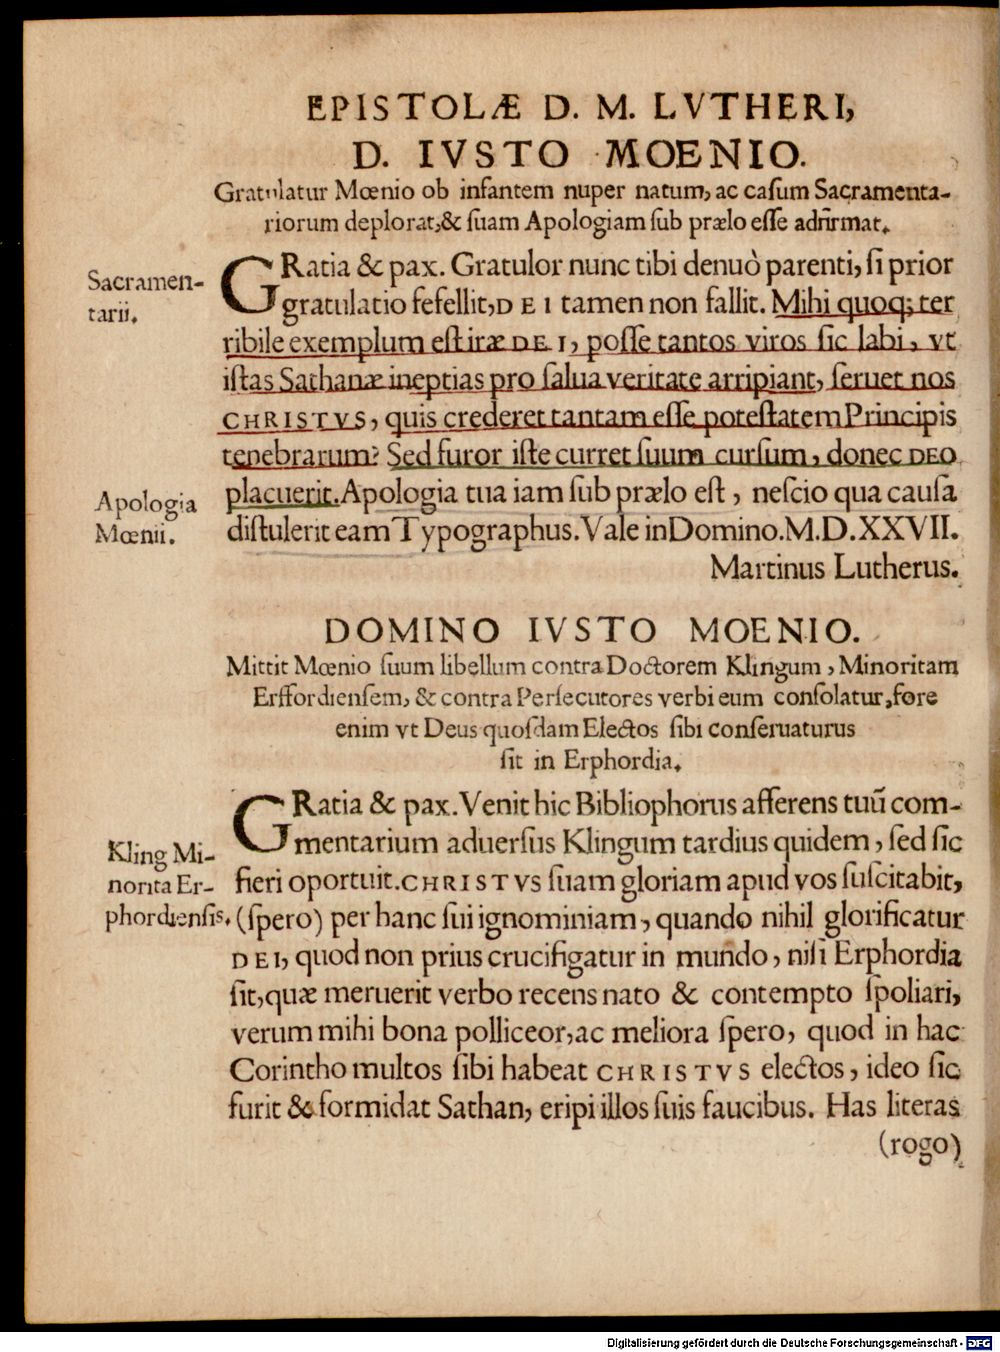 EPISTOLÆ D. M. LVTHERI,
D. IVSTO MOENIO.
Gratulatur Mœnio ob infantem nuper natum, ac caſum Sacramenta-
riorum deplorat, & ſuam Apologiam ſub prælo eſſe adfirmat.
Sacramen-
tarii.
GRatia & pax. Gratulor nunc tibi denuò parenti, ſi prior
gratulatio fefellit, DEI tamen non fallit. Mihi quoq; ter
ribile exemplum eſt iræ DEI, poſſe tantos viros ſic labi, vt
iſtas Sathanæ ineptias pro ſalua veritate arripiant, ſeruet nos
CHRISTVS, quis crederet tantam eſſe poteſtatem Principis
tenebrarum? Sed furor iſte curret ſuum curſum, donec DEO
placuerit. Apologia tua iam ſub prælo eſt, neſcio qua cauſa
diſtulerit eam Typographus. Vale in Domino. M.D.XXVII.
Apologia
Mœnii.
Martinus Lutherus.
DOMINO IVSTO MOENIO.
Mittit Mœnio ſuum libellum contra Doctorem Klingum, Minoritam
Erffordienſem, & contra Perſecutores verbi eum conſolatur, fore
enim vt Deus quoſdam Electos ſibi conſeruaturus
ſit in Erphordia.
GRatia & pax. Venit hic Bibliophorus afferens tuũ com-
mentarium aduerſus Klingum tardius quidem, ſed ſic
fieri oportuit. CHRISTVS ſuam gloriam apud vos ſuſcitabit,
(ſpero) per hanc ſui ignominiam, quando nihil glorificatur
DEI, quod non prius crucifigatur in mundo, niſi Erphordia
ſit, quæ meruerit verbo recens nato & contempto ſpoliari,
verum mihi bona polliceor, ac meliora ſpero, quod in hac
Corintho multos ſibi habeat CHRISTVS electos, ideo ſic
furit & formidat Sathan, eripi illos ſuis faucibus. Has literas
Kling Mi-
norita Er-
phordienſis.
(rogo)
Digitalisierung gefördert durch die Deutsche Forschungsgemeinschaft - DFG